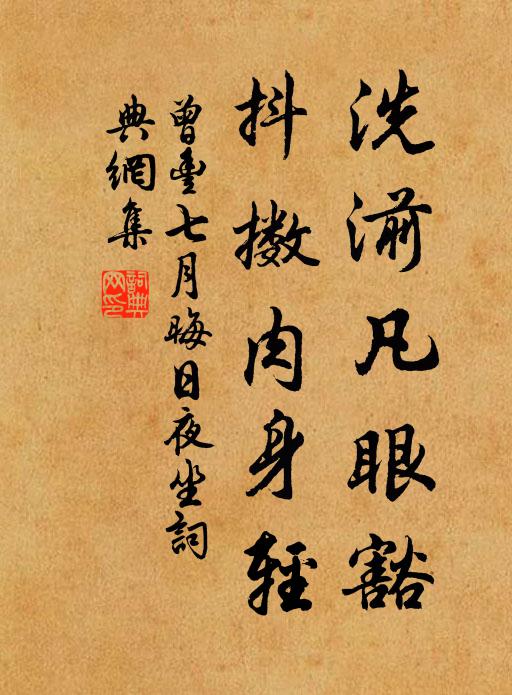 洗湔凡眼豁
抖擻肉身輕
曾豐七月晦日夜坐詞
典網集
詞典网印